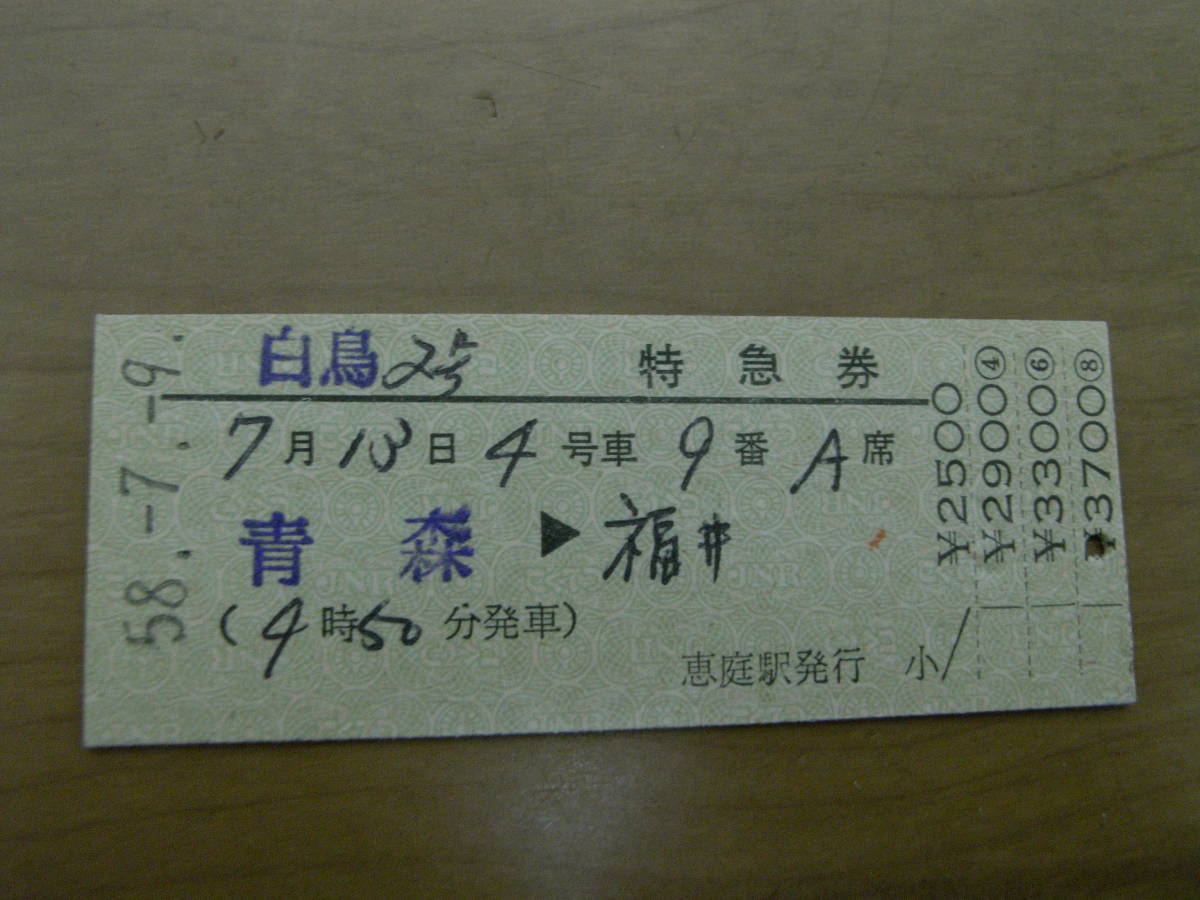 白鳥2号 特急券
7月13日4号車9番A席
青森▶福井
(4時50分発車)
恵庭駅発行 小
58.-7.-9.
¥2500
¥2900④
¥3300⑥
¥3700⑧